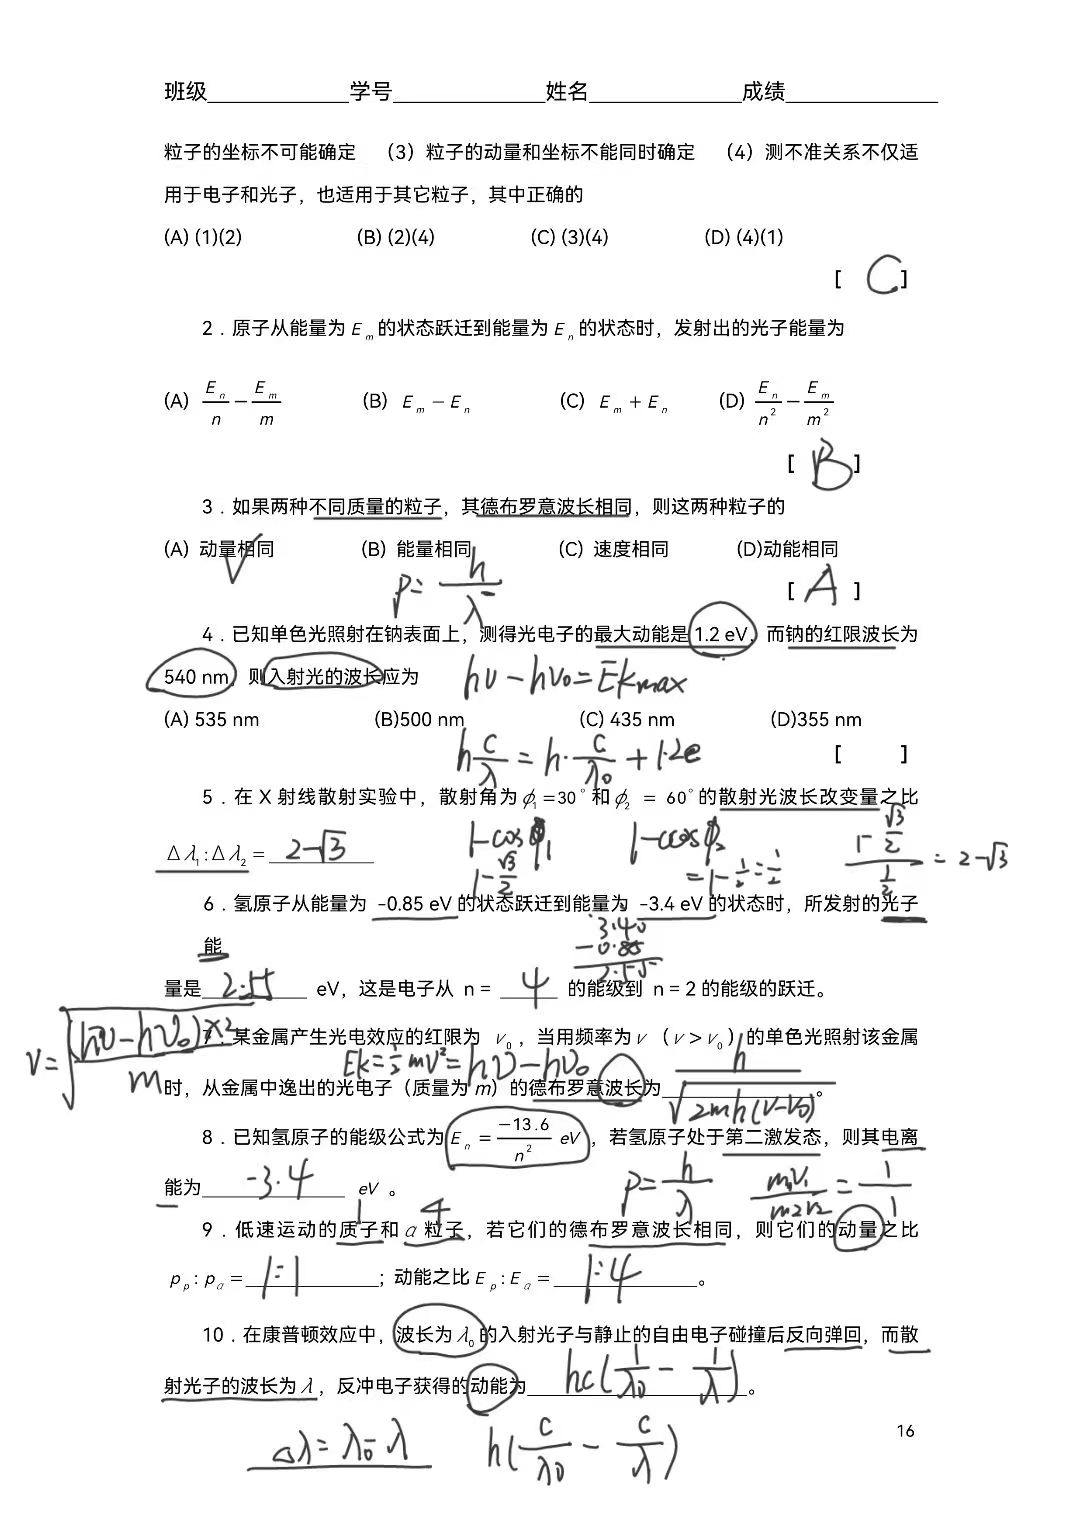 班级 学号 姓名 成绩
粒子的坐标不可能确定 （3）粒子的动量和坐标不能同时确定 （4）测不准关系不仅适
用于电子和光子，也适用于其它粒子，其中正确的
(A) (1)(2) (B) (2)(4) (C) (3)(4) (D) (4)(1)
[ C ]
2．原子从能量为 E_m 的状态跃迁到能量为 E_n 的状态时，发射出的光子能量为
(A) E_n/n − E_m/m (B) E_m − E_n (C) E_m + E_n (D) E_n/n² − E_m/m²
[ B ]
3．如果两种不同质量的粒子，其德布罗意波长相同，则这两种粒子的
(A) 动量相同 (B) 能量相同 (C) 速度相同 (D)动能相同
√ p = h/λ [ A ]
4．已知单色光照射在钠表面上，测得光电子的最大动能是 1.2 eV，而钠的红限波长为
540 nm，则入射光的波长应为 hν − hν₀ = Ekmax
(A) 535 nm (B)500 nm (C) 435 nm (D)355 nm
h c/λ = h· c/λ₀ + 1.2e [ ]
5．在 X 射线散射实验中，散射角为 ϕ₁=30°和 ϕ₂ = 60°的散射光波长改变量之比
Δλ₁:Δλ₂ = 2−√3 1−cosϕ₁ 1−cosϕ₂ (1−√3/2)/(1/2) = 2−√3
1−√3/2 = 1−1/2=1/2
6．氢原子从能量为 −0.85 eV 的状态跃迁到能量为 −3.4 eV 的状态时，所发射的光子
能 3.40
−0.85
2.55
量是 2.55 eV，这是电子从 n = 4 的能级到 n = 2 的能级的跃迁。
v = √((hν−hν₀)×2/m)
7．某金属产生光电效应的红限为 ν₀，当用频率为 ν（ν > ν₀）的单色光照射该金属
Ek = ½mv² = hν − hν₀
时，从金属中逸出的光电子（质量为 m）的德布罗意波长为 h/√(2mh(ν−ν₀))。
8．已知氢原子的能级公式为 E_n = −13.6/n² eV，若氢原子处于第二激发态，则其电离
能为 −3.4 eV 。 p = h/λ m₁v₁/m₂v₂ = 1/1
1 4
9．低速运动的质子和 α 粒子，若它们的德布罗意波长相同，则它们的动量之比
p_p : p_α = 1:1 ；动能之比 E_p : E_α = 1:4 。
10．在康普顿效应中，波长为 λ₀ 的入射光子与静止的自由电子碰撞后反向弹回，而散
射光子的波长为 λ，反冲电子获得的动能为 hc(1/λ₀ − 1/λ) 。
Δλ = λ₀ − λ h(c/λ₀ − c/λ)
16